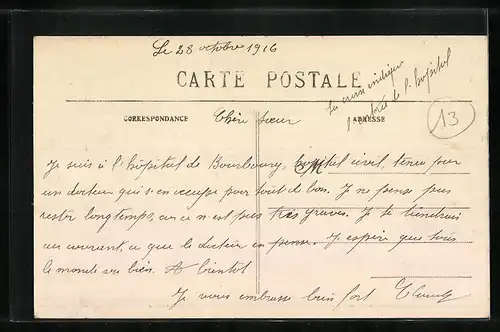 Le 28 octobre 1916
CARTE POSTALE
La croix indique
l'entrée de l'hôpital
13
CORRESPONDANCE
ADRESSE
Chère sœur
Je suis à l'hôpital de Bourbourg, hopital civil, tenu par
un docteur qui s'en occupe pour tout de bon. Je ne pense pas
rester longtemps, car ce n'est pas très grave. Je te tiendrai
au courant, ce que le docteur en pense. J'espère que tous
le monde va bien. A bientôt
Je vous embrasse bien fort